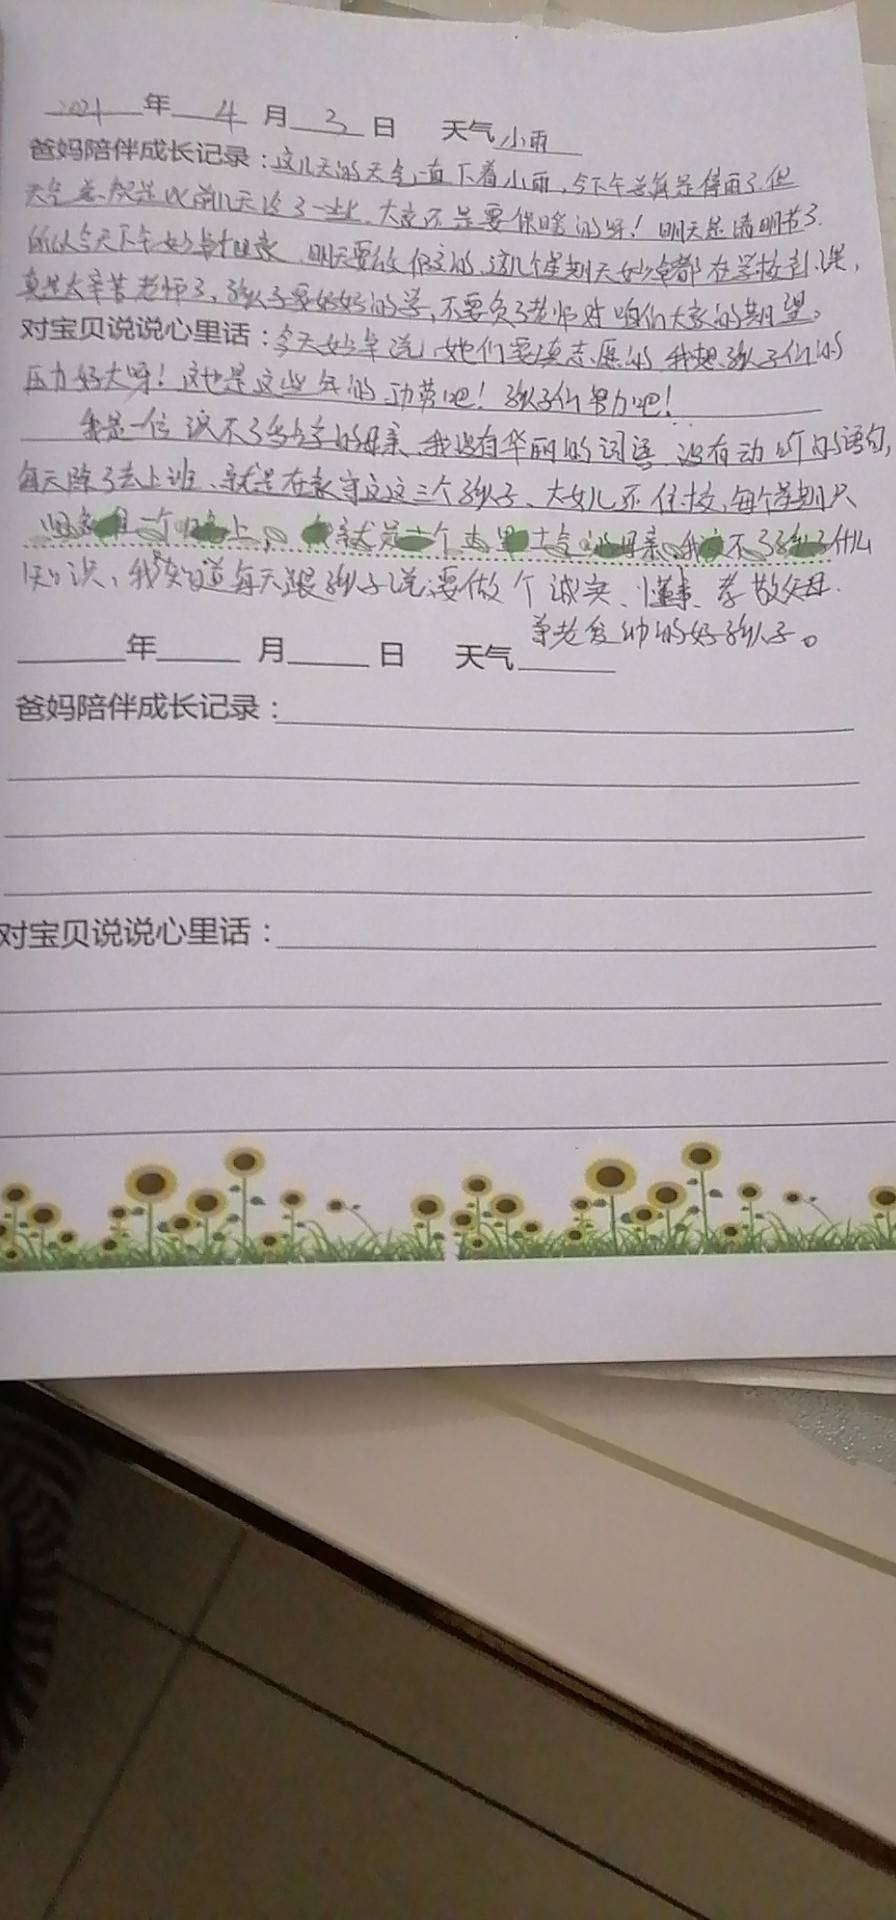 2021年4月3日 天气小雨
爸妈陪伴成长记录:这几天的天气一直下着小雨,今下午总算是停雨了.但
天气还是比前几天冷了一些.大家还是要保暖的呀!明天是清明节了.
所以今天下午妙卓 明天要放假的,这几个星期天妙卓都在学校补课,
真是太辛苦老师了,孩子要好好的学,不要负了老师对咱们大家的期望。
对宝贝说说心里话:今天妙卓说,她们要填志愿的 我想孩子们的
压力好大呀!这也是这些年的功劳吧!孩子们努力吧!
我是一位识不了多少字的母亲,我没有华丽的词语,没有动听的语句,
每天除了去上班、就是在家守这这三个孩子、大女儿还住校,每个星期只
一个晚上。 就是一个 母亲 我 不了孩子什么
知识、我知道每天跟孩子说:要做个诚实、懂事、孝敬父母.
尊老爱幼的好孩子。
年 月 日 天气
爸妈陪伴成长记录:
对宝贝说说心里话: